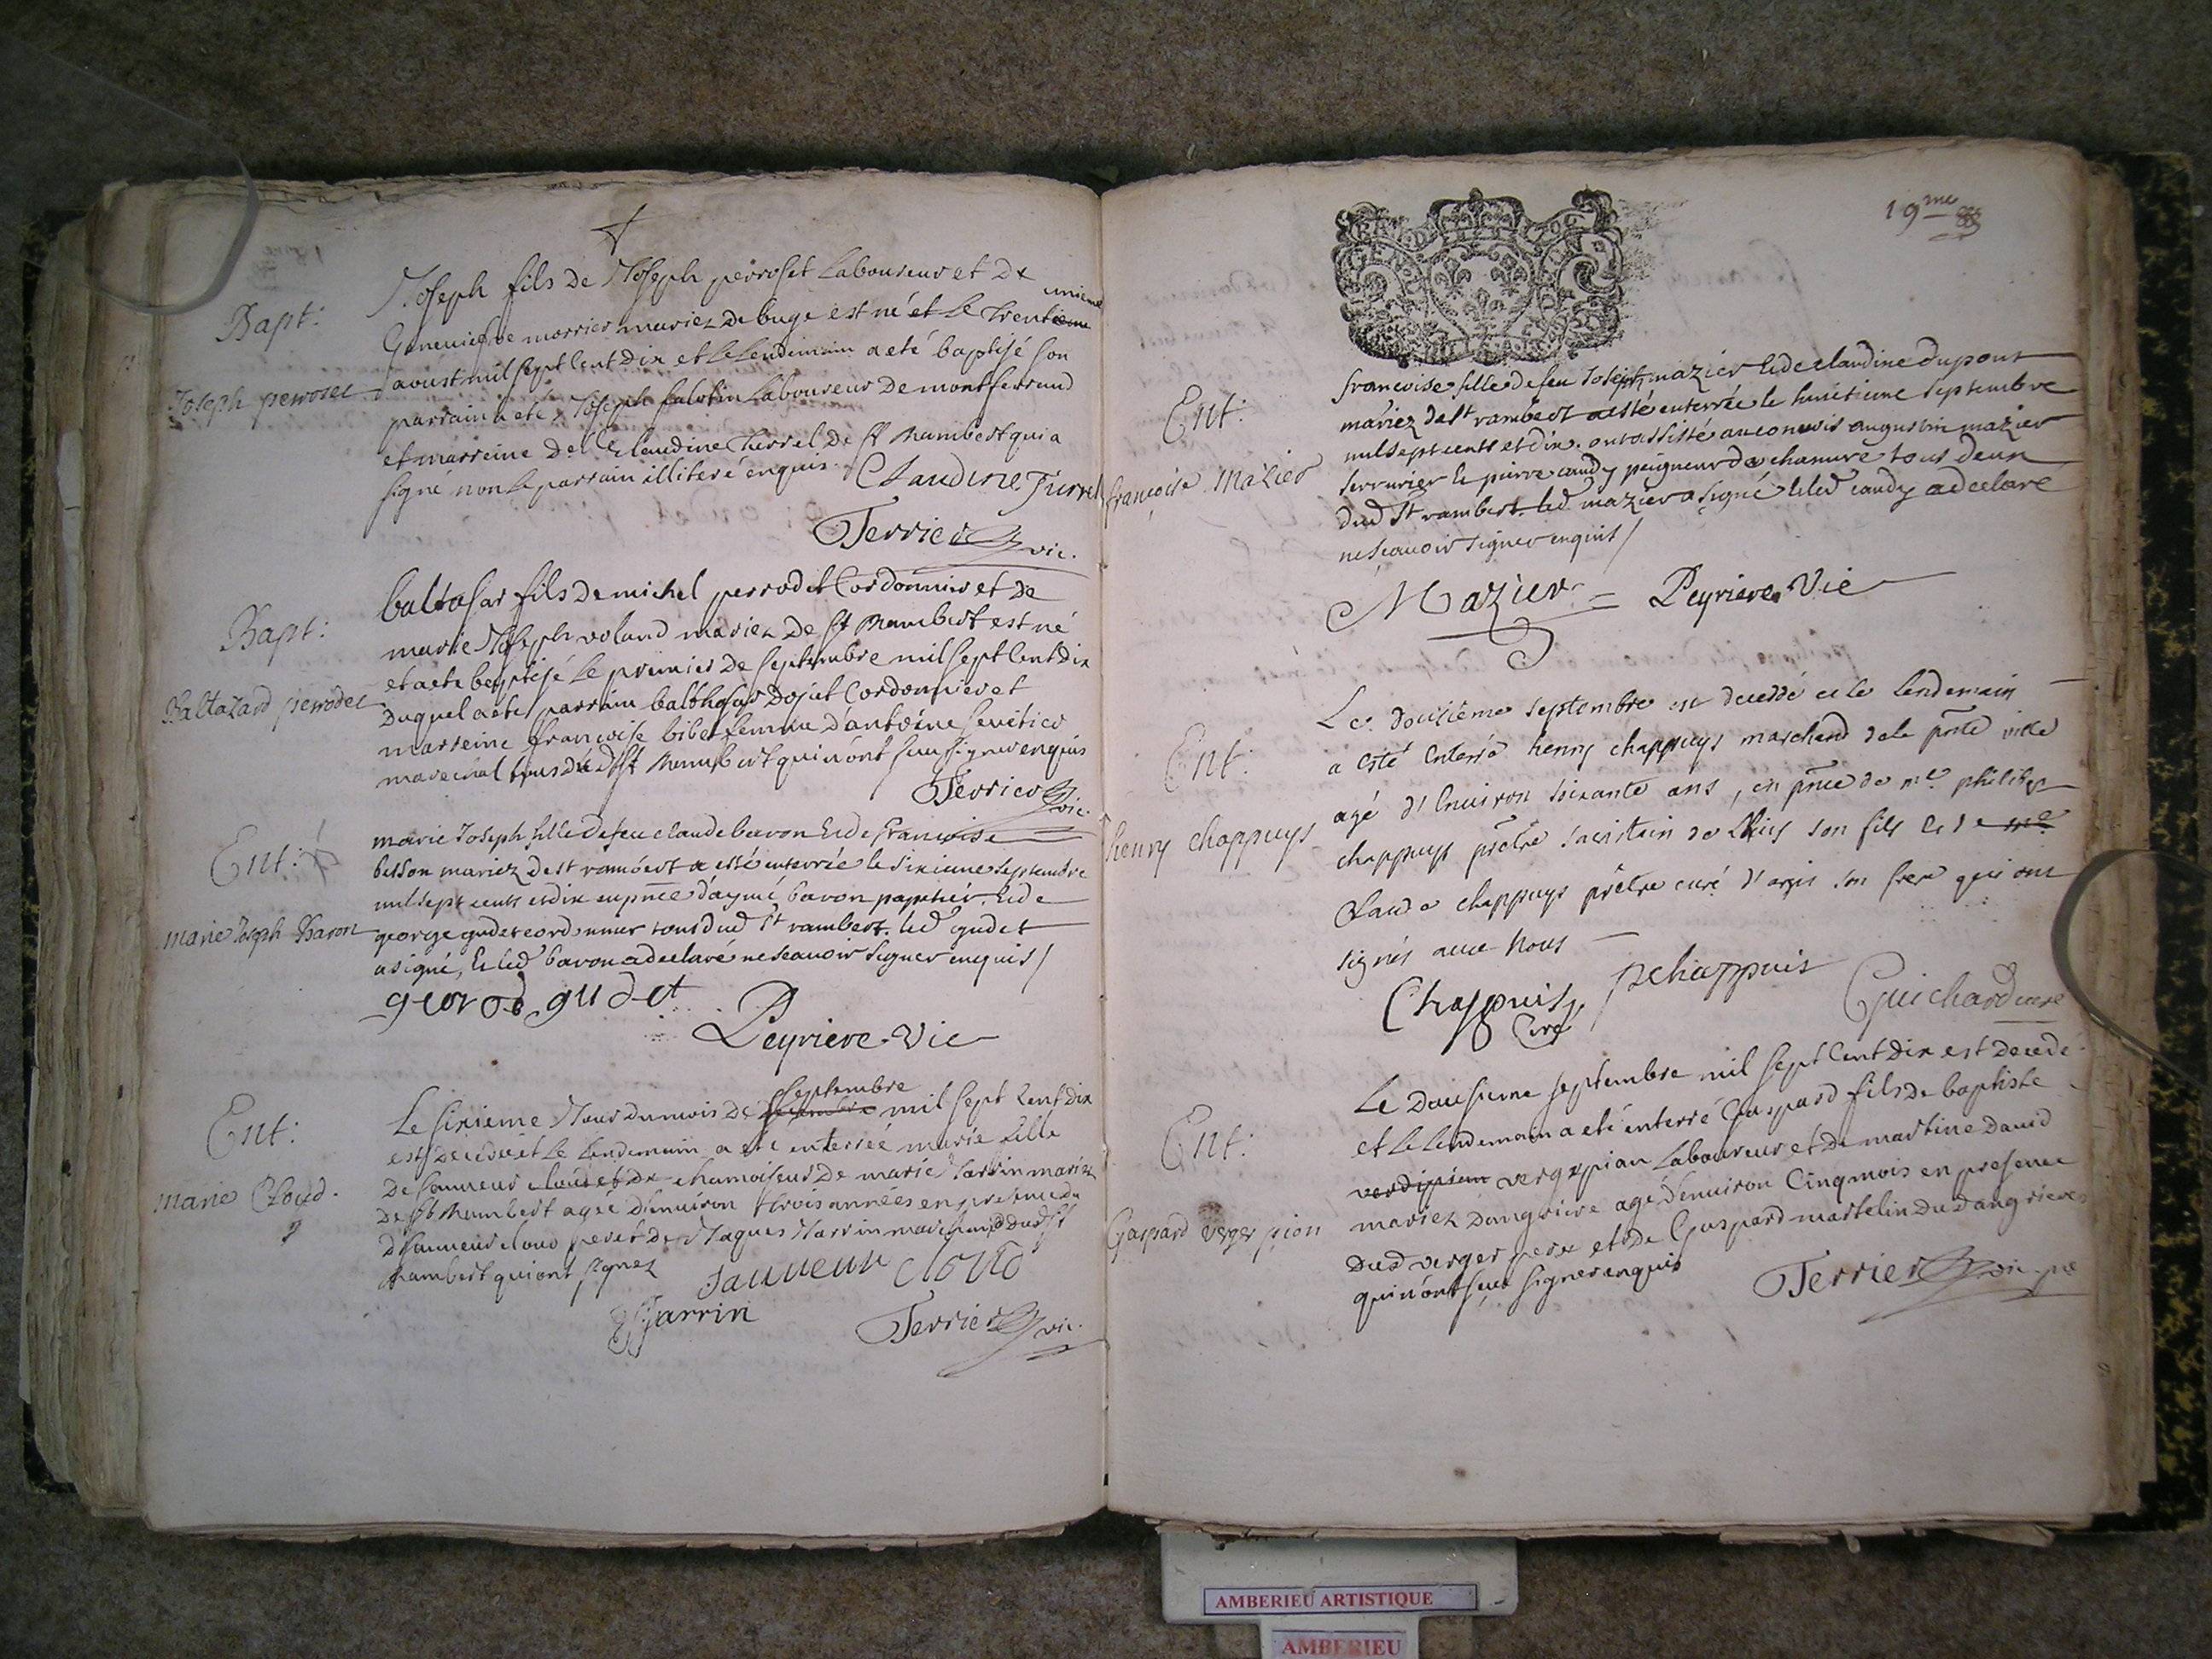 Bapt:
Joseph perroset
Joseph fils de Joseph perroset Laboureur et De
Geneuiefue morrier mariez de buge est né et le trentieme unieme
aoust mil sept Cent Dix et le Lendemain a eté baptisé son
parrain a eté Joseph falotin Laboureur De montferrand
et marreine Delle Claudine Jurrel De St Rambert qui a
signé non le parrain illiteré enquis. Claudine Jurrel
Terrier vic.
Bapt:
Baltazard perrodet
baltasar fils De michel perrodet Cordonnier et De
marie Joseph voland mariez De St Rambert est né
et a eté baptisé le premier De septembre mil sept Cent Dix
Duquel a eté parrain balthasar Dojat Cordonnier et
marreine francoise bibet femme d'antoine
marechal tous du dt St Rambert qui n'ont sceu signer enquis
Terrier vic.
Ent:
marie Joseph Baron
marie Joseph fille de feu claude baron & de francoise
besson mariez de st rambert a esté enterrée le sixieme septembre
mil sept cents et dix en pnce d'aymé baron papetier & de
george gudet cordonnier tous dud St rambert. led gudet
a signé, & led baron a declaré ne scauoir signer enquis /
george gudet
Peyriere. Vic
Ent:
marie Cloud.
Le sixieme Jour du mois de decembre septembre mil sept Cent Dix
est Decedé et le Lendemain a eté enterreé marie fille
De sauueur cloud et De chamoiseur De marie Jarrin mariez
De St Rambert ageé D'enuiron trois années en presence du
d sauueur cloud pere et de Jaques Jarrin marchand dud St
Rambert qui ont signez sauueur cloud
Jarrin
Terrier vic.
19me
Ent:
françoise Mazier
francoise fille de feu Joseph mazier & de claudine dupont
mariez de St rambert a esté enterrée le huictieme septembre
mil sept cents et dix. ont assisté au conuois augustin mazier
serrurier & pierre caudy peigneur de chanure tous deux
dud St rambert. led mazier a signé & led caudy a declaré
ne scauoir signer enquis /
Mazier = Peyriere. Vic
Ent:
henry chappuys
Le douzième septembre est decedé et le lendemain
a esté enterré henry chappuys marchand de la pnte ville
agé d'enuiron soixante ans, en pnce de mre philibert
chappuys prêtre sacristain de son fils et de mre
Claude chappuys prêtre curé d'argis son frere qui ont
signés auec nous
Chappuis, Curé pchappuis Guichard curé
Ent:
Gaspard verger pion
Le Dousieme septembre mil sept Cent Dix est Decedé
et le lendemain a eté enterré Gaspard fils De baptiste
verdipian vergepian Laboureur et De martine Dauid
mariez Dangriere agé D'enuiron Cinq mois en presence
Dud verger pere et De Gaspard martelin Du d angrieres
qui n'ont sceu signer enquis Terrier vic.
AMBERIEU ARTISTIQUE
AMBERIEU